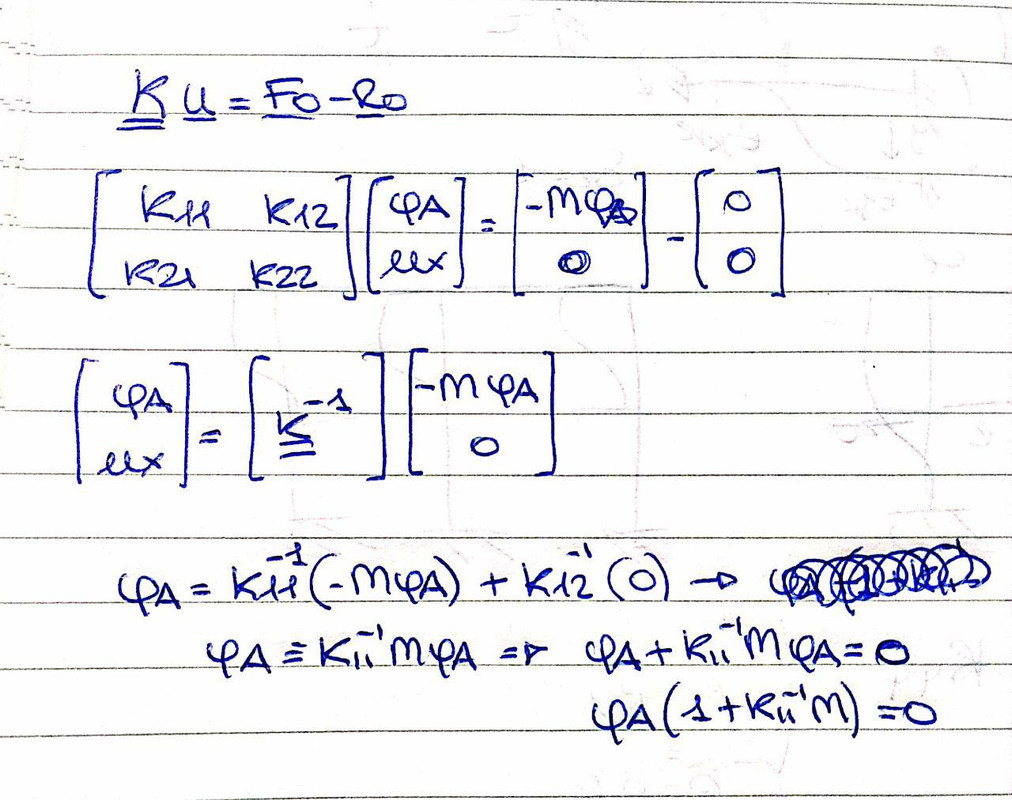 K u = F0 - R0
[K11 K12] [φA] = [-MφA] - [0]
[K21 K22] [ux] [0] [0]
[φA] = [K⁻¹] [-M φA]
[ux] [0]
φA = K11⁻¹ (-MφA) + K12⁻¹ (0) →
φA = K11⁻¹ M φA ⇒ φA + K11⁻¹ M φA = 0
φA (1 + K11⁻¹ M) = 0